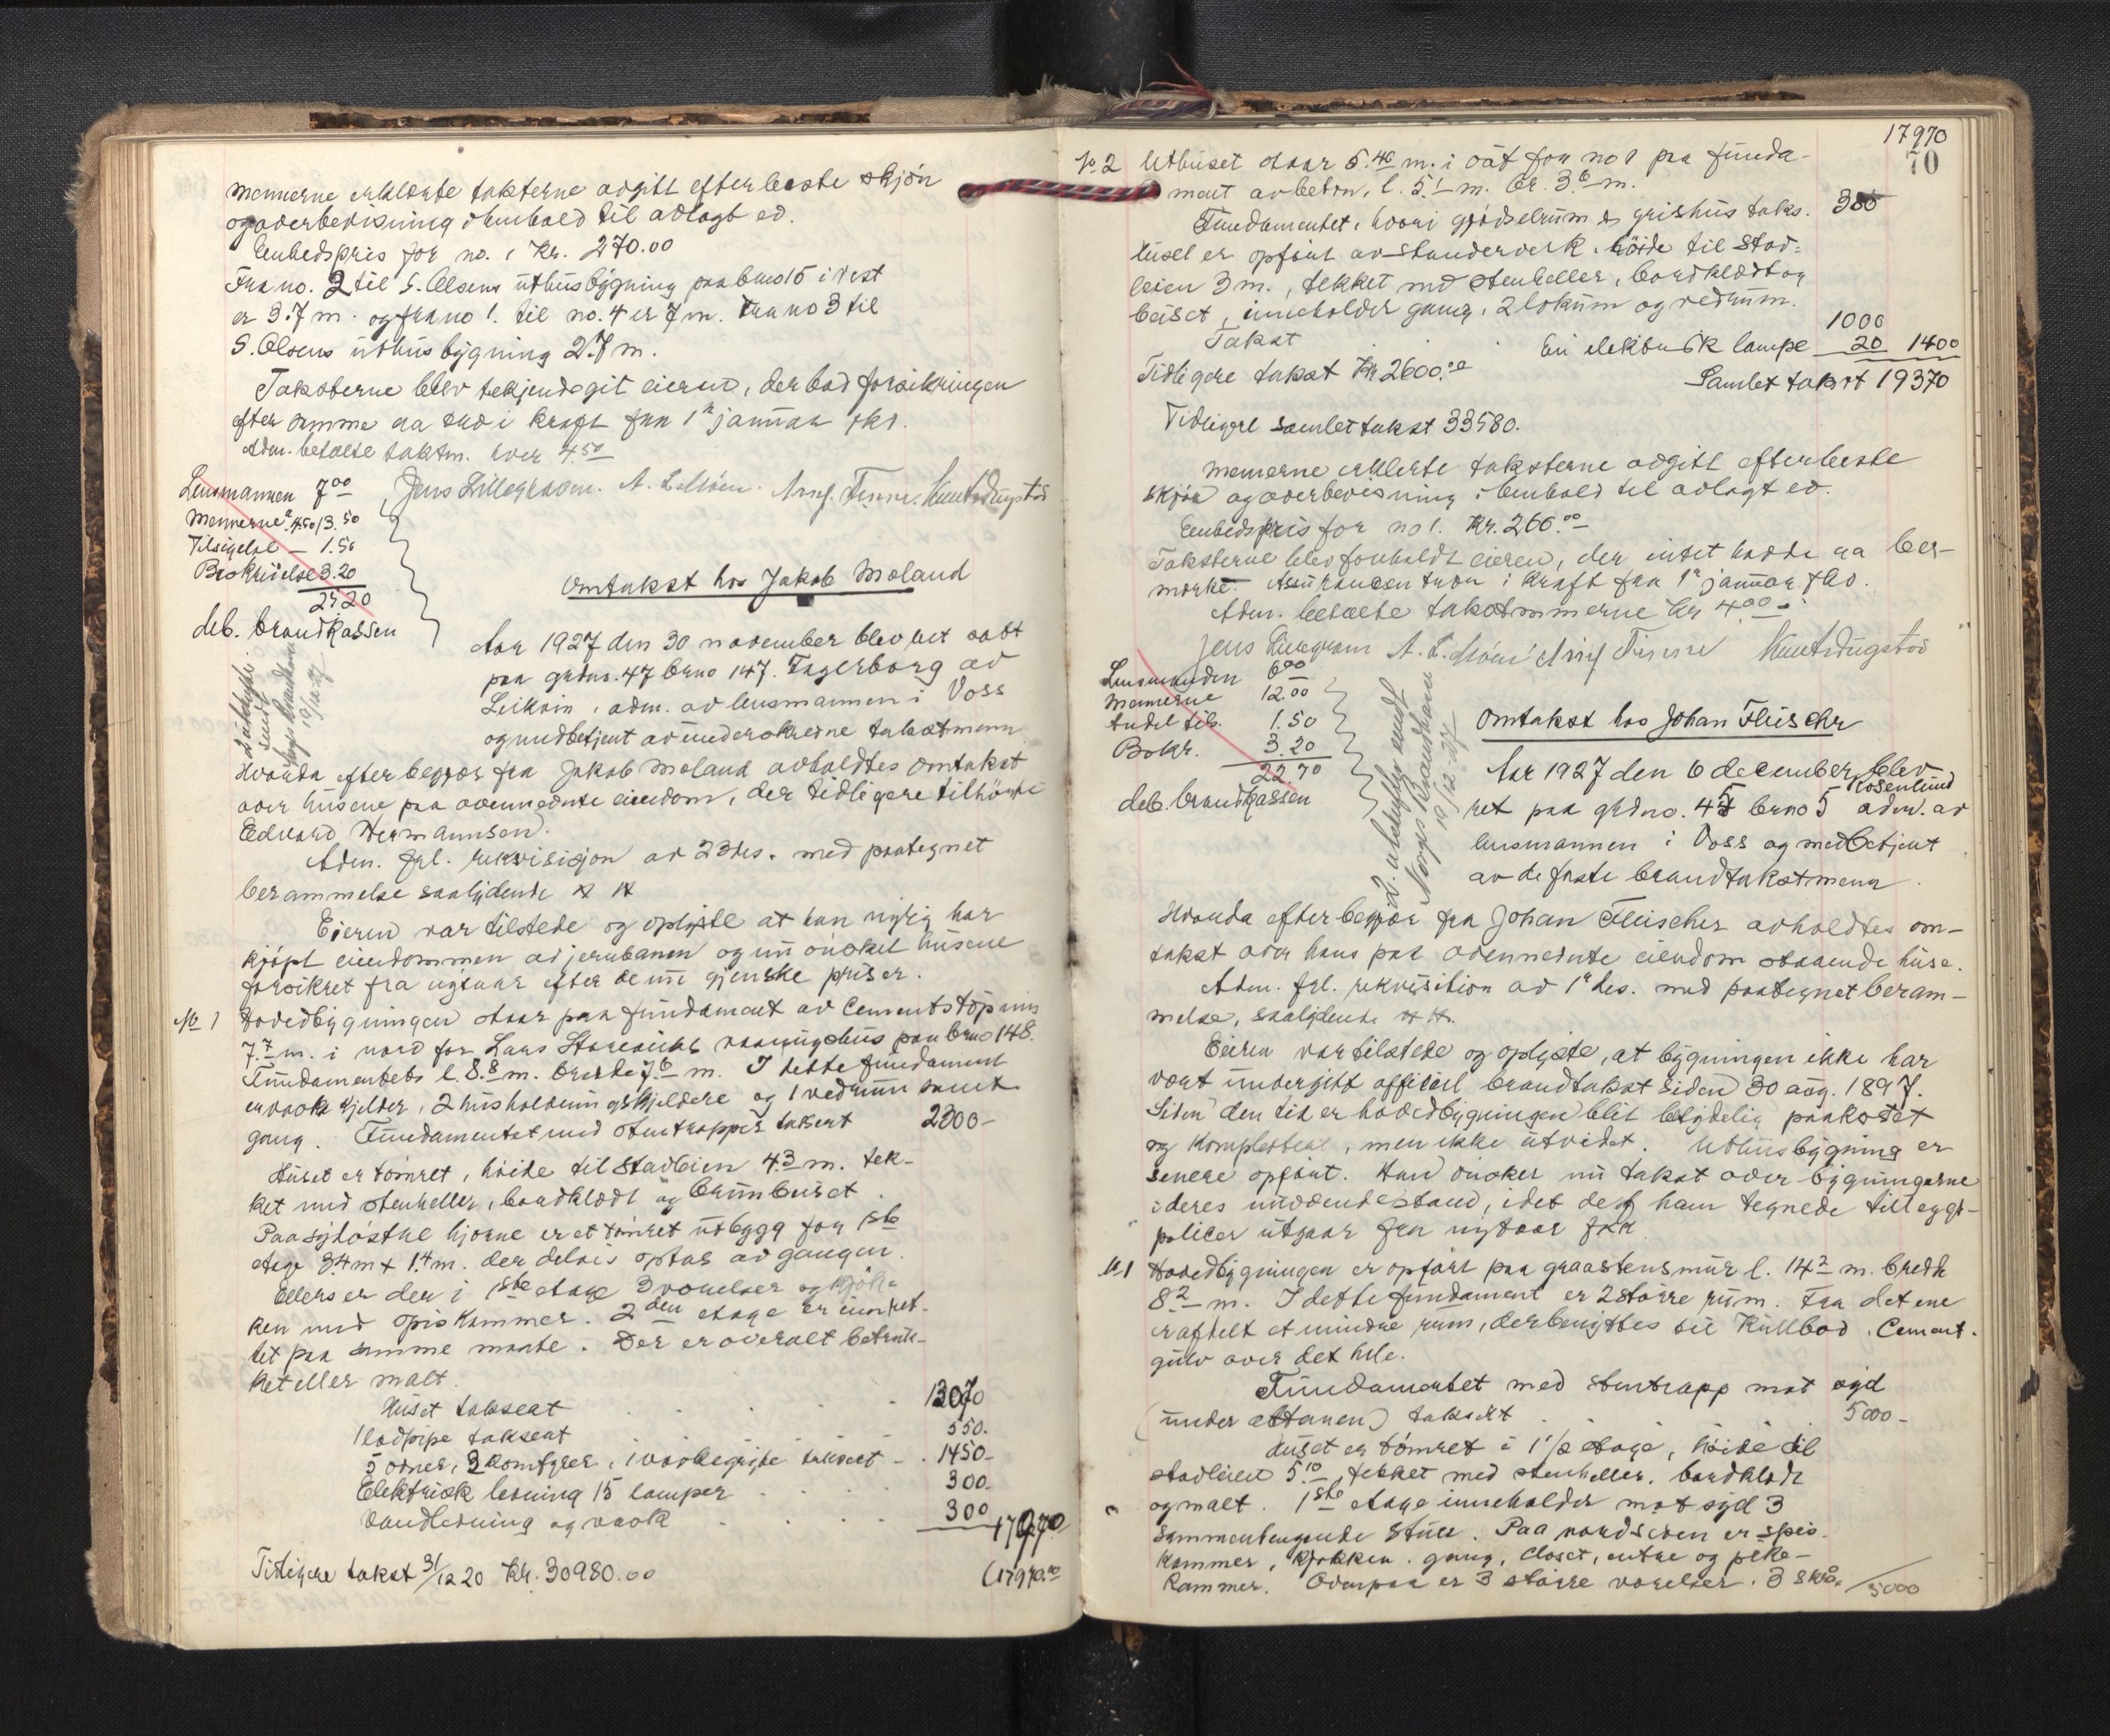 Mennerne erklærte taksterne avgitt efter beste skjön
og overbevisning i henhold til avlagt ed.
Enhedspris for no. 1 Kr. 270.00
Fra no. 2 til S. Olsens uthusbygning paa bruno 15 i vest
er 3.7 m. og fra no 1. til no. 4 er 7 m. Fra no 3 til
S. Olsens uthusbygning 2.7 m.
Taksterne blev bekjendtgit eieren, der bad forsikringen
efter samme aa træ i kraft fra 1ste januar fkt.
Adm. betalte takstm. hver 4.50
Jens Lillegraven. A. L. Móen. Arnf. Finne. Knut Dugstad
Lensmannen 7.00
Mennerne a 4.50 13.50
Tilsigelse — 1.50
Beskrivelse 3.20
25.20
deb. brandkassen
Omtakst hos Jakob Moland
Aar 1927 den 30 november blev ret satt
paa grdno. 47 bruno 147. Fagerborg av
Leikvin, adm. av lensmannen i Voss
og medbetjent av underskrevne takstmenn
Hvorda efter begjær fra Jakob Moland avholdtes omtakst
over husene paa ovennevnte eiendom, der tidligere tilhörte
Edvard Hermannsen.
Adm. frl. rekvisisjon av 23 ds. med paategnet
berammelse saalydende
Eieren var tilstede og oplyste at han nylig har
kjöpt eiendommen av jernbanen og nu önsket husene
forsikret fra nytaar efter de nu gjenske priser.
No 1 Hovedbygningen staar paa fundament av Cementstöpning
7.7 m. i nord for Lars vaaningshus paa bruno 148.
Fundamentets l. 8.8 m. bredde 7.6 m. I dette fundament
er vask kjelder, 2 husholdningskjeldere og 1 vedrum samt
gang. Fundamentet med stentrapper taksert 2300-
Huset er tömret, höide til stavleien 4.3 m. tek-
ket med stenheller, bordklædt og brunbeiset.
Paa sydöstre hjörne er et tömret utbygg for 1ste
etage 3.4 m x 1.4 m. der delvis optas av gangen.
Ellers er der i 1ste etage 3 værelser og kjök-
ken med spiskammer. 2den etage er innret-
tet paa samme maate. Der er overalt betræk-
ket eller malt.
Huset taksert 13070
1 lodpipe taksert 550.
5 ovner, 2 komfyrer, 1 vaskegryte taksert 1450-
Elektrisk ledning 15 lamper 300.
Vandledning og vask 300 17970
Tidligere takst 31/12 20 Kr. 30980.00 (17970.00
17970
70
No. 2 Uthuset staar 5.40 m. i öst for no 1 paa funda-
ment av beton, l. 5.1 m. br. 3.6 m.
Fundamentet, hvori gjödselrum og grishus taks. 380
Huset er opfört av standerverk, höide til stav-
leien 3 m., tekket med stenheller, bordklædt og
beiset, inneholder gang, 2 lokum og vedrum.
Takst 1000
En elektrisk lampe 20 1400
Tidligere takst Kr 2600.00 Samlet takst 19370
Tidligere samlet takst 33580.
Mennerne erklærte taksterne avgitt efter beste
skjön og overbevisning i henhold til avlagt ed.
Enhedspris for no 1. Kr. 266.00
Taksterne blev forholdt eieren, der intet hadde aa be-
merke. Assuransen træder i kraft fra 1ste januar fkt.
Adm. betalte takstmennerne Kr 4.00
Jens Lillegraven A. L. Móen Arnf Finne Knut Dugstad
Lensmanden 6.00
Mennerne 12.00
Andel tils. 1.50
Beskr. 3.20
22.70
deb. brandkassen
2 utskrifter sendt
Norges Brandkasse
19/12-27
Omtakst hos Johan Fleischer
Aar 1927 den 6 december blev
ret paa grdno. 45 brno 5 Rosenlund adm. av
lensmannen i Voss og medbetjent
av de faste brandtakstmenn.
Hvorda efter begjær fra Johan Fleischer avholdtes om-
takst over hans paa ovennevnte eiendom staaende huse.
Adm. frl. rekvisition av 1ste ds. med paategnet beram-
melse, saalydende
Eieren var tilstede og oplyste, at bygningen ikke har
vært undergitt officiel brandtakst siden 30 aug. 1897.
Siden den tid er hovedbygningen blit betydelig paakostet
og komplettert, men ikke utvidet. Uthusbygning er
senere opfört. Han önsker nu takst over bygningerne
i deres nuværende stand, idet de af ham tegnede tillegs-
policer utgaar fra nytaar fkt.
No. 1 Hovedbygningen er opfört paa graastensmur l. 14.2 m. bredde
8.2 m. I dette fundament er 2 större rum. Fra det ene
er aftelt et mindre rum, der benyttes til kullbod. Cement-
gulv over det hele.
Fundamentet med stentrapp mot syd
(under altanen) taksert 5000-
Huset er tömret i 1 1/2 etage, höide til
stavleien 5.10, tekket med stenheller, bordklædt
og malt. 1ste etage inneholder mot syd 3
sammenhengende stuer. Paa nordsiden er spis-
kammer, kjøkken, gang, closet, entre og pike-
kammer. Ovenpaa er 3 större værelser, 3 skraa-
5000